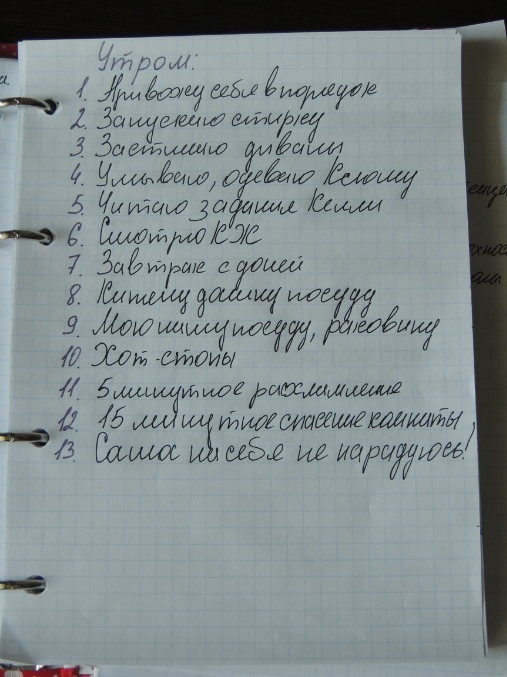 Утром:
1. Привожу себя в порядок
2. Запускаю стирку
3. Застилаю диваны
4. Умываю, одеваю Ксюшу
5. Читаю задания Келли
6. Смотрю КЖ
7. Завтрак с доней
8. Кипячу дашину посуду
9. Мою нашу посуду, раковину
10. Хот-споты
11. 5 минутное расхламление
12. 15 минутное спасение комнаты,
13. Сама на себя не нарадуюсь!